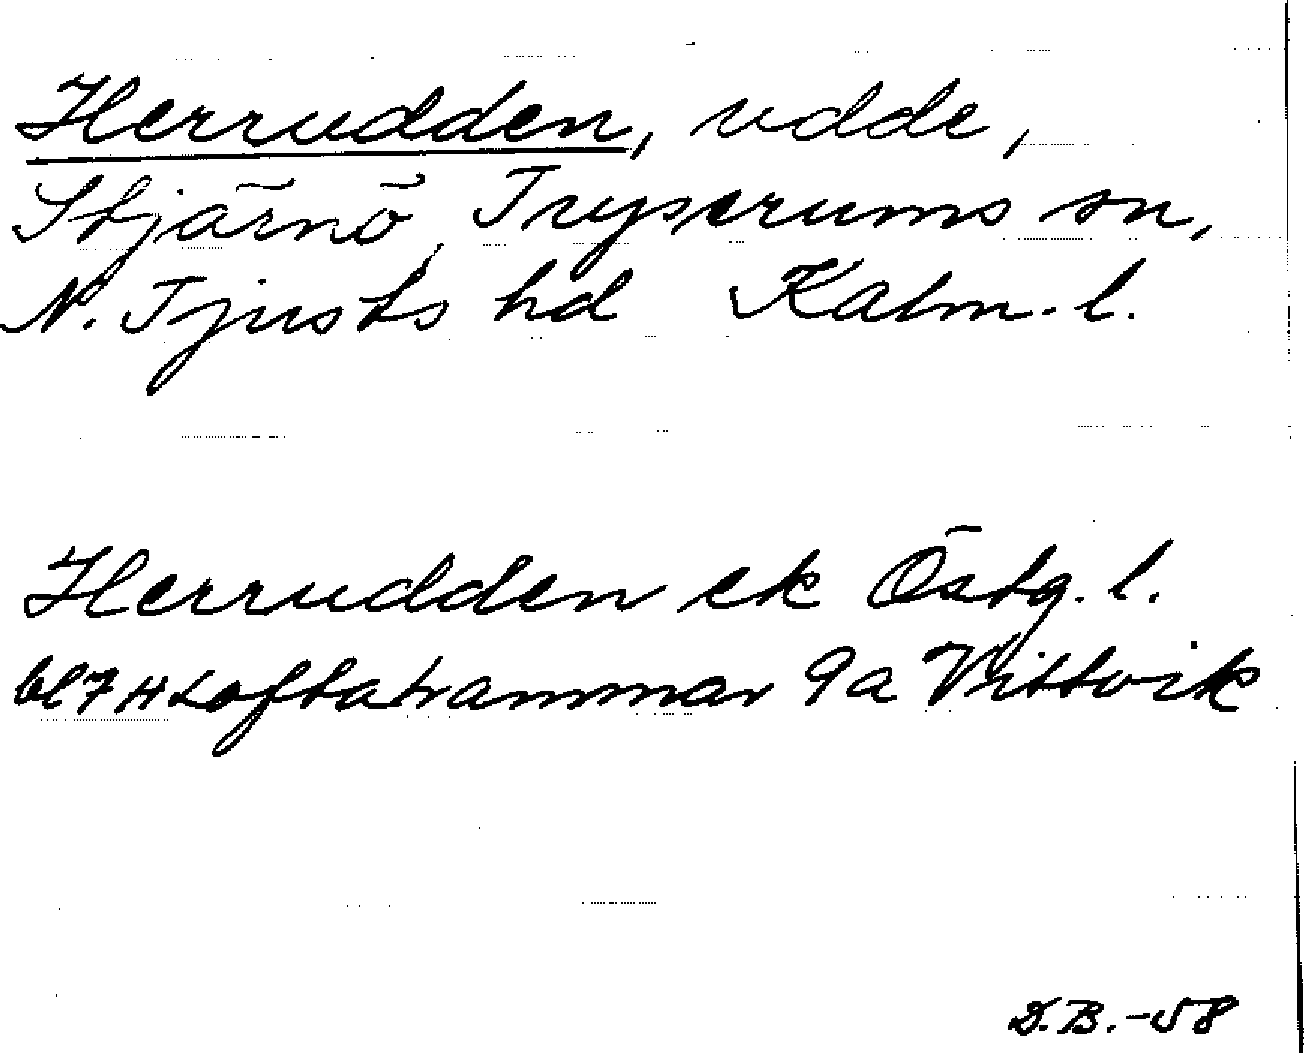 Herrudden, udde,
Stjärnö, Tryserums sn,
N. Tjusts hd Kalm. l.
Herrudden ek Östg. l.
bl 7 H Loftahammar 9a Vittvik
D.B.-58